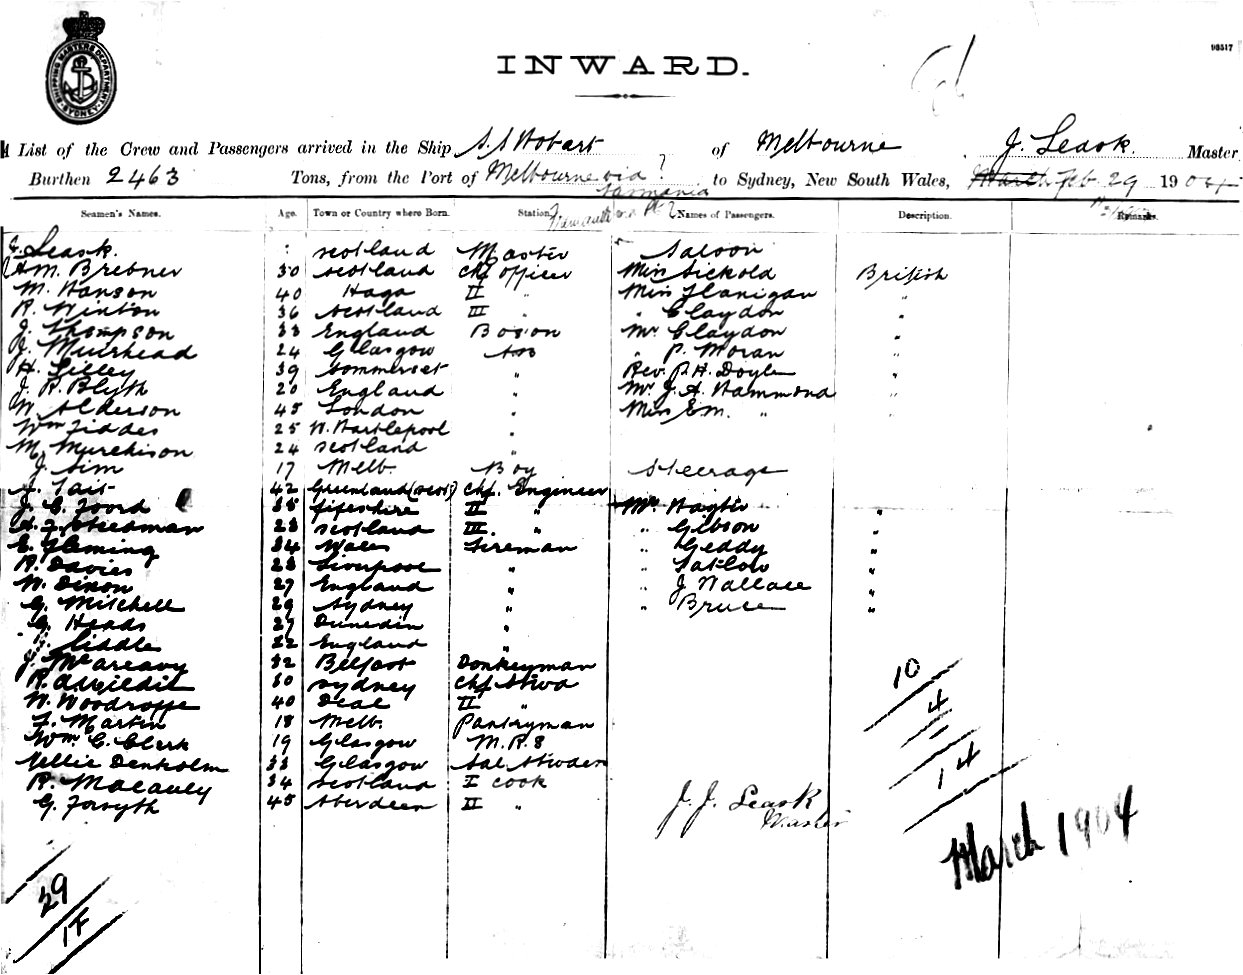 SHIPPING MASTERS DEPARTMENT SYDNEY
98517
INWARD.
A List of the Crew and Passengers arrived in the Ship S.S Hobart of Melbourne J. Leask Master
Burthen 2463 Tons, from the Port of Melbourne via Tasmania to Sydney, New South Wales, March Feb 29 1904
Seamen's Names. Age. Town or Country where Born. Station. Names of Passengers. Description. Remarks.
J. Leask. Scotland Master Saloon
M. Brebner 30 Scotland Chf Officer Miss Sickold British
M. Hanson 40 Haga II " Miss Flanigan "
R. Winton 36 Scotland III " " Claydon "
J. Thompson 33 England Boson Mr Claydon "
J. Muirhead 24 Glasgow AB " P. Moran "
H. Lilley 39 Sommerset " Rev. P.H. Doyle "
J. R. Blyth 20 England " Mr J. A. Hammond "
W. Alderson 45 London " Miss E.M. " "
Wm Fiddes 25 W. Hartlepool "
M. Murchison 24 Scotland "
J. Sim 17 Melb. Boy Steerage
J. Tait 42 Greenland (Scot) Chf. Engineer
J. C. Foord 35 Fifeshire II " Mr Hayter "
Steedman 23 Scotland III. " " Gibson "
E. Fleming 34 Wales Fireman " Geddy "
R. Davies 23 Liverpool " " Tatlow "
W. Dixon 27 England " " J Wallace "
G. Mitchell 29 Sydney " " Bruce "
G. Heads 27 Dunedin "
Liddle 22 England "
J. McAreavy 32 Belfast Donkeyman
R. 30 Sydney Chf Stwd
W. Woodroffe 40 Deal II "
F. Martin 18 Melb. Pantryman
Wm. C. Clerk 19 Glasgow M.R.S
Nellie Denholm 33 Glasgow Sal Stwdes
R. Macauley 34 Scotland I cook
G. Forsyth 45 Aberdeen II "
10
4
14
J. J. Leask
Master
March 1904
29
14